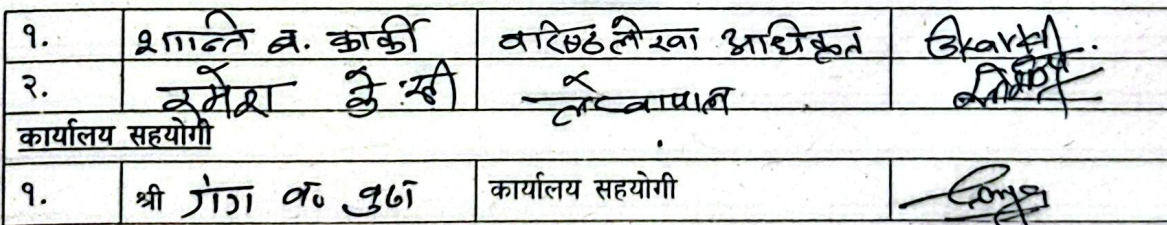 १. शान्ति ब. कार्की वरिष्ठ लेखा अधिकृत
२. रमेश के.सी लेखापाल
कार्यालय सहयोगी
१. श्री गंग ब० बुढा कार्यालय सहयोगी